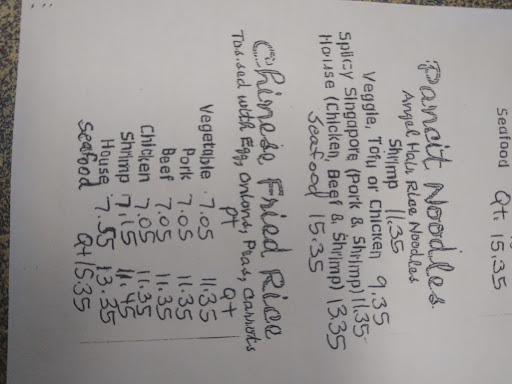 Seafood Qt. 15.35
Pancit Noodles
Angel Hair Rice Noodles
Shrimp 11.35
Veggie, Tofu or Chicken 9.35
Spicy Singapore (Pork & Shrimp) 11.35
House (Chicken, Beef & Shrimp) 13.35
Seafood 15.35
Chinese Fried Rice
Tossed with Egg, Onions, Peas, Carrots
pt Qt
Vegetable 7.05 11.35
Pork 7.05 11.35
Beef 7.05 11.35
Chicken 7.05 11.35
Shrimp 7.15 11.45
House 7.55 13.35
Seafood Qt 15.35